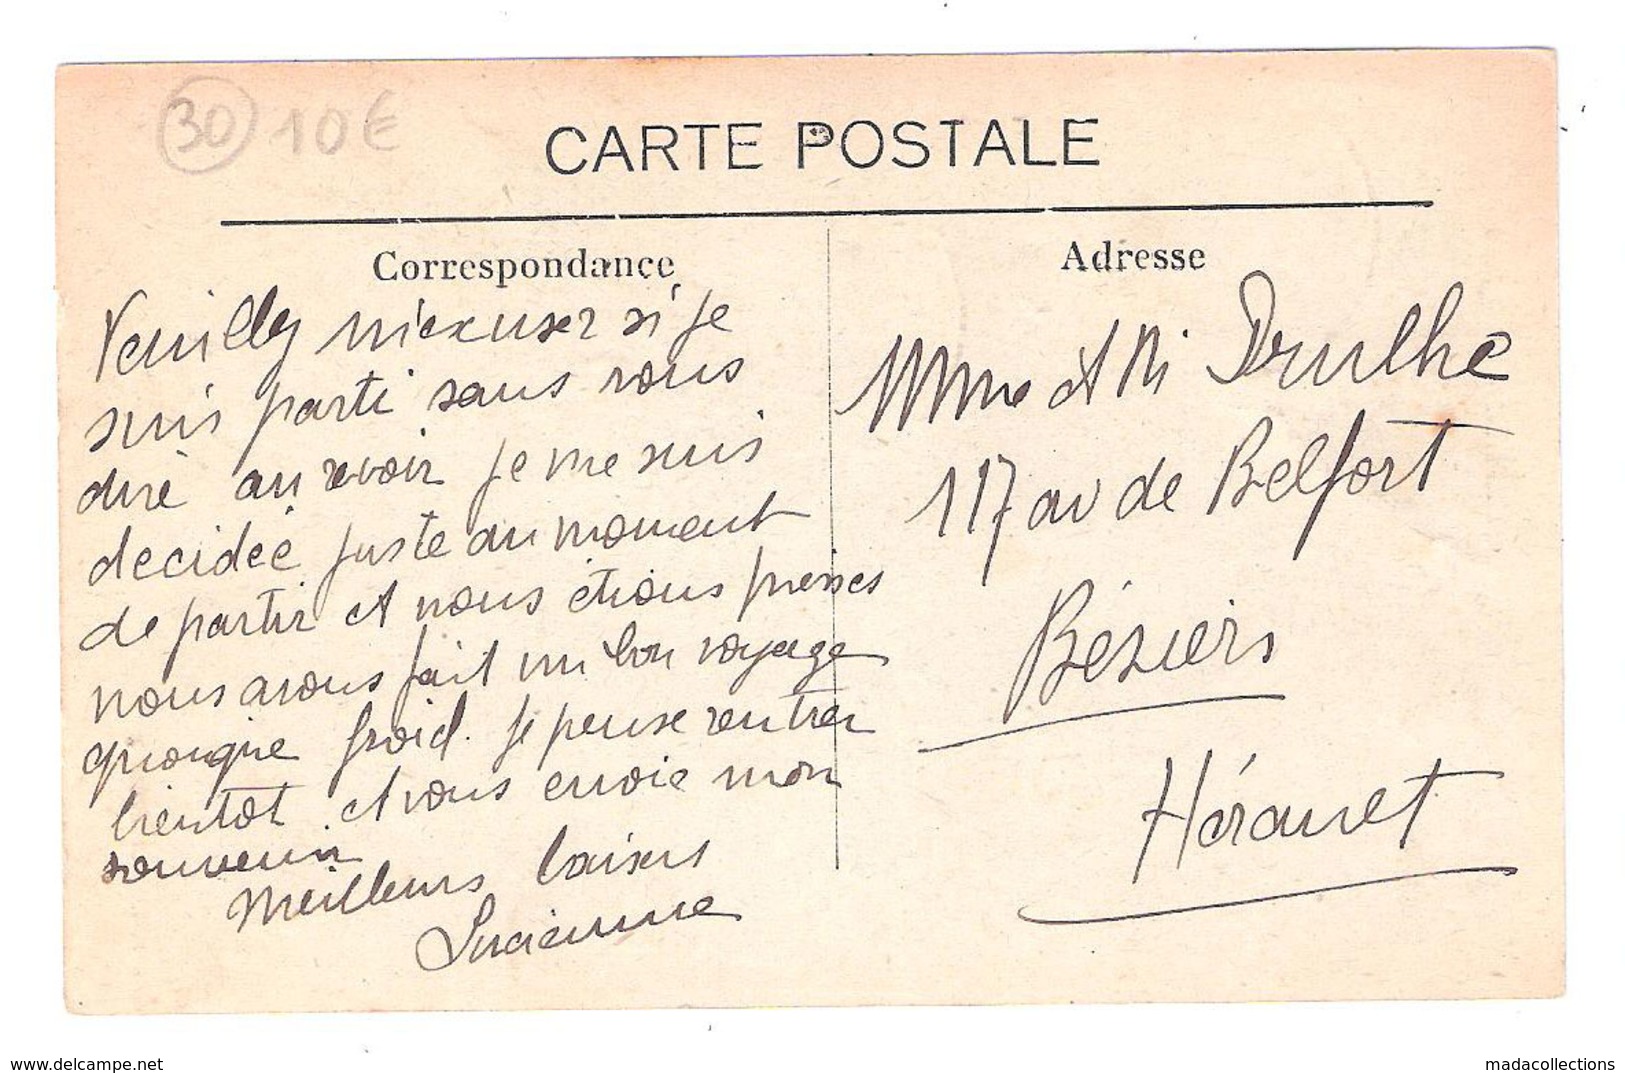 30 10€
CARTE POSTALE
Correspondance
Veuillez m'excuser si je
suis parti sans vous
dire au revoir je me suis
decidée juste au moment
de partir et nous étions pressés
nous avons fait un bon voyage
quoique froid. Je pense rentrer
bientôt et vous envoie mon
souvenir
Meilleurs baisers
Lucienne
Adresse
Mme et Mr Drulhe
117 av de Belfort
Béziers
Hérault
www.delcampe.net
madacollections